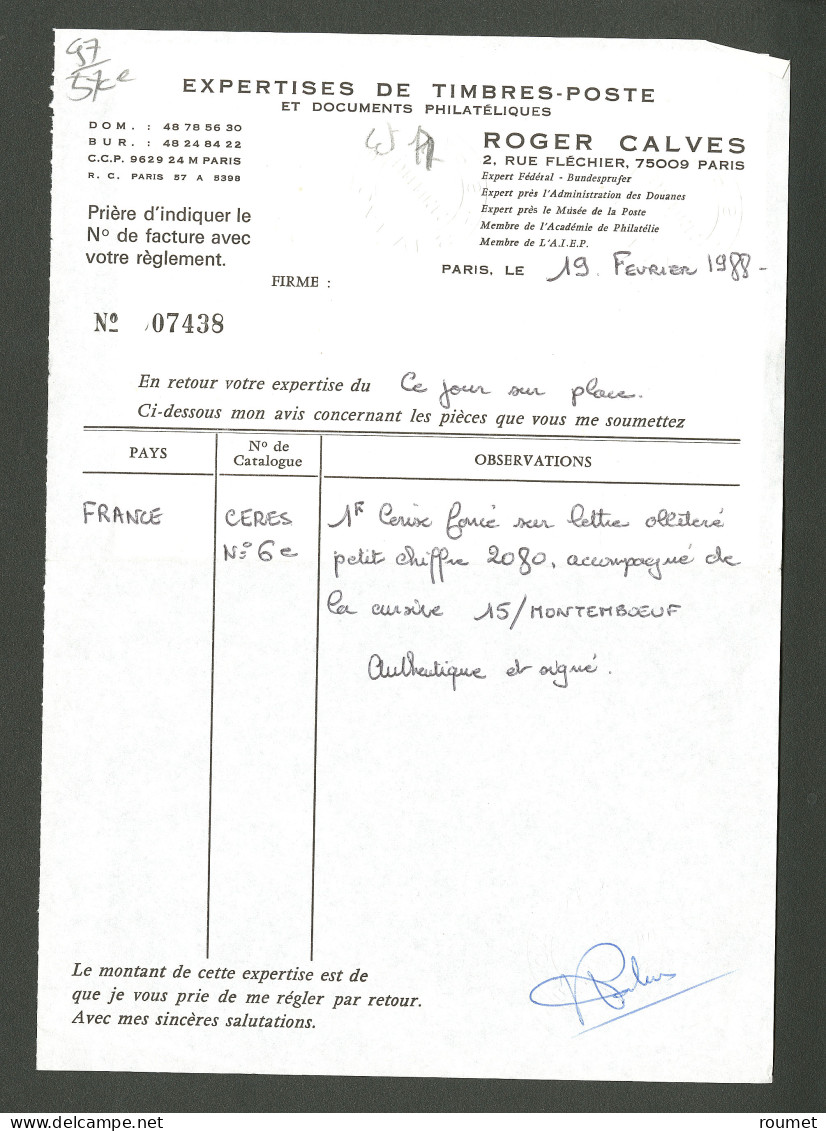 97
57ce
EXPERTISES DE TIMBRES-POSTE
ET DOCUMENTS PHILATÉLIQUES
DOM. : 48 78 56 30
BUR. : 48 24 84 22
C.C.P. 9629 24 M PARIS
R. C. PARIS 57 A 5398
ROGER CALVES
2, RUE FLÉCHIER, 75009 PARIS
Expert Fédéral - Bundesprufer
Expert près l'Administration des Douanes
Expert près le Musée de la Poste
Membre de l'Académie de Philatélie
Membre de L'A.I.E.P.
Prière d'indiquer le
No de facture avec
votre règlement.
PARIS, LE 19. FEVRIER 1988-
FIRME :
No 07438
En retour votre expertise du Ce jour sur place.
Ci-dessous mon avis concernant les pièces que vous me soumettez
PAYS
No de
Catalogue
OBSERVATIONS
FRANCE
CERES
No 6e
1F Cerise foncé sur lettre obliteré
petit chiffre 2080, accompagné de
la cursive 15/MONTEMBOEUF
Authentique et signé.
Le montant de cette expertise est de
que je vous prie de me régler par retour.
Avec mes sincères salutations.
Calves
roumet